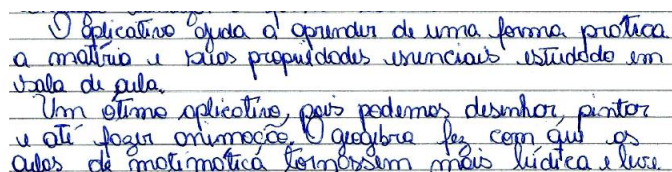 O aplicativo ajuda a aprender de uma forma prática
a matéria e suas propriedades essenciais estudado em
sala de aula.
Um ótimo aplicativo, pois podemos desenhar, pintar
e até fazer animação. O geogebra fez com que as
aulas de matemática tornassem mais lúdica e livre